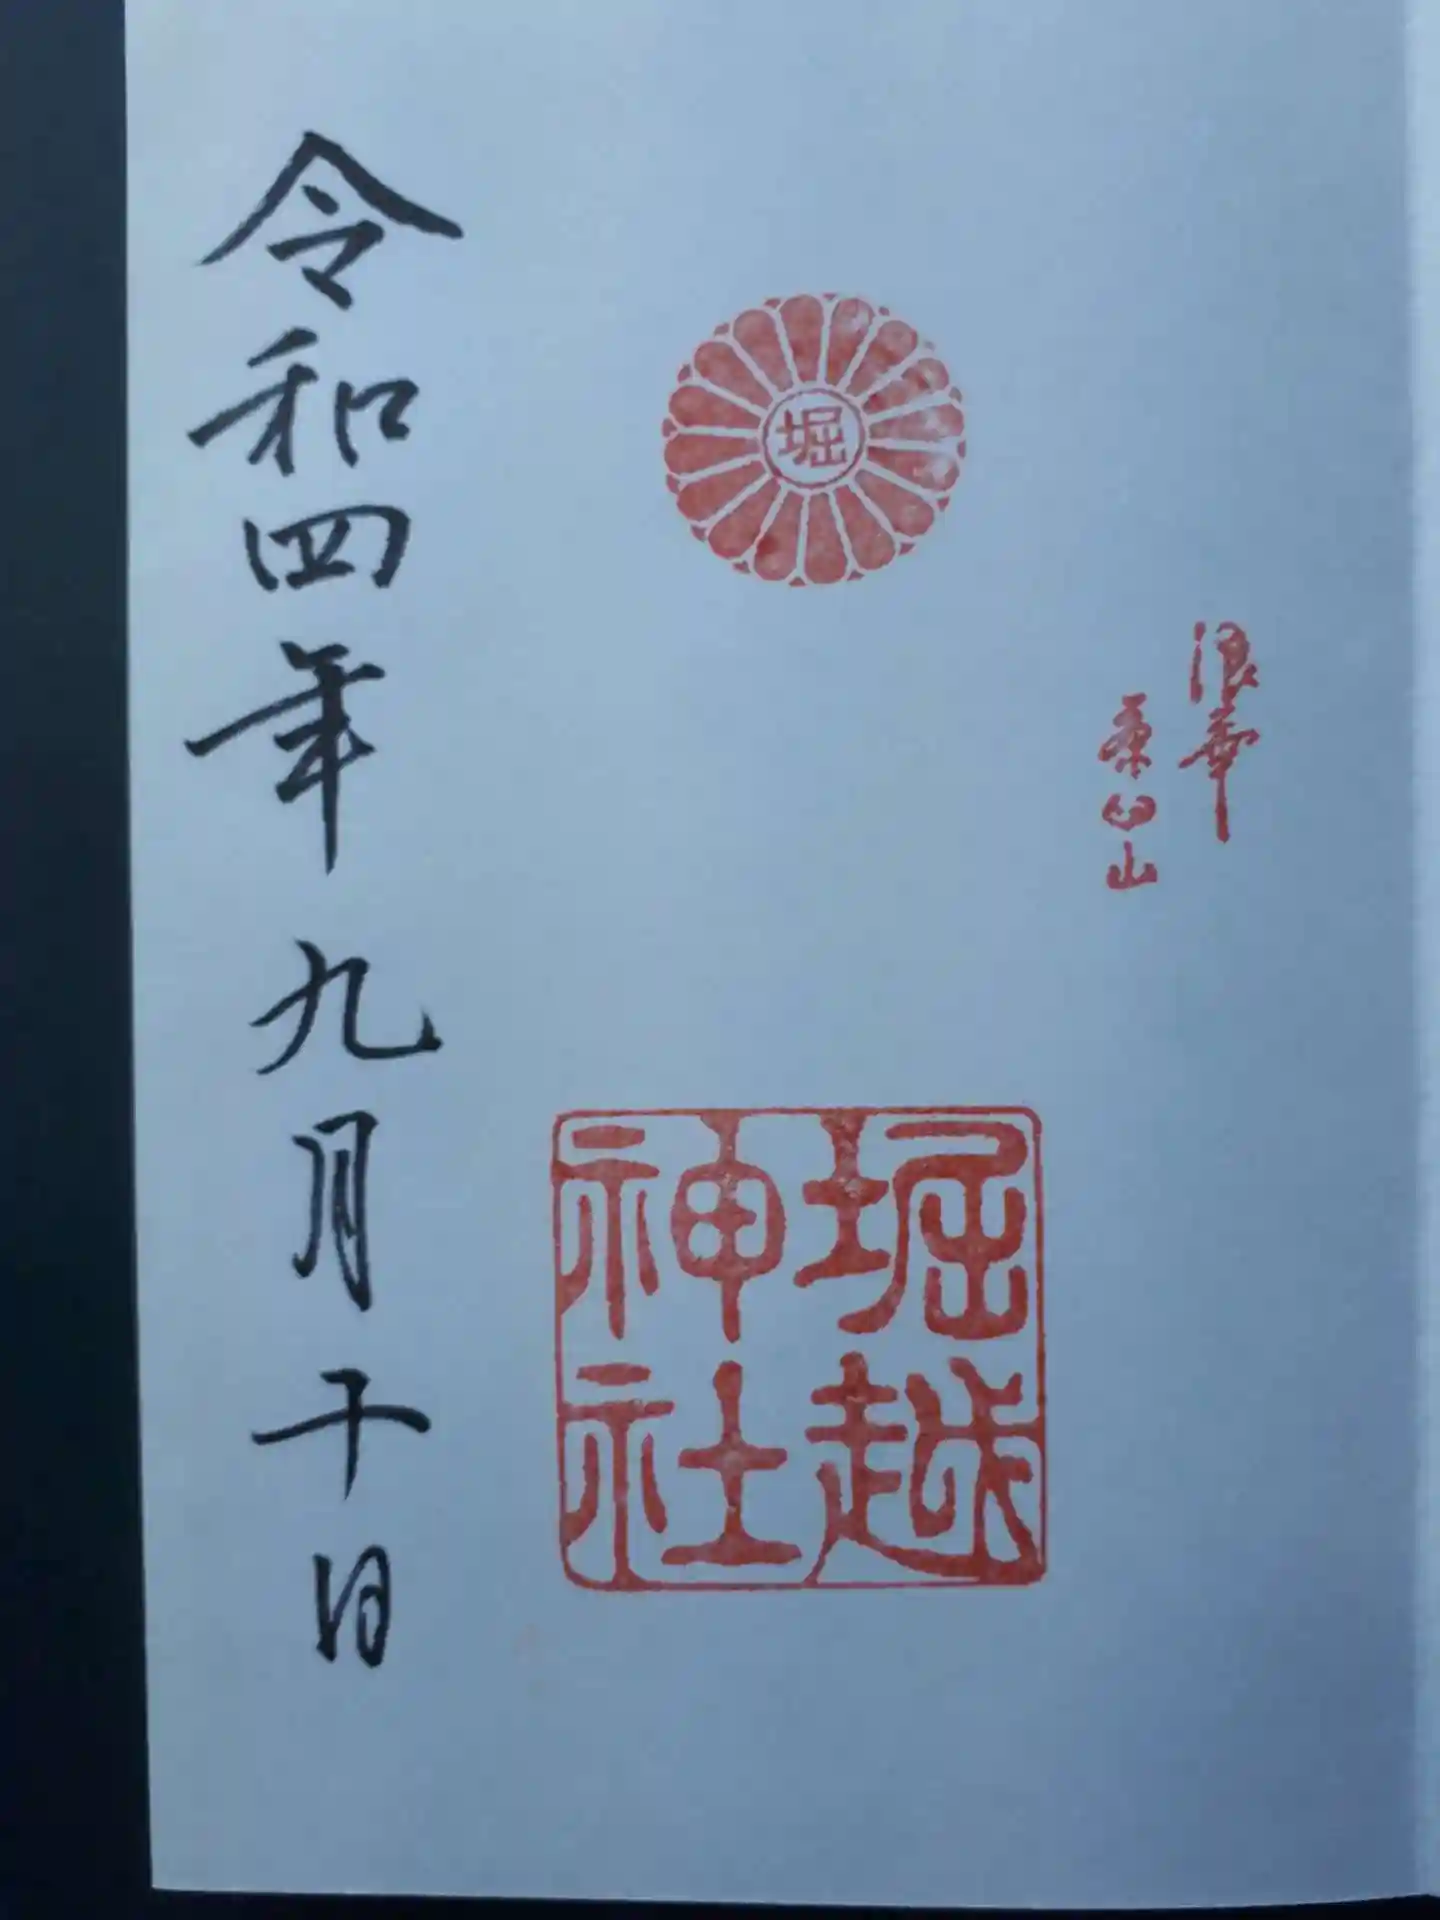 浪華
茶臼山
堀
堀越
神社
令和四年九月十日